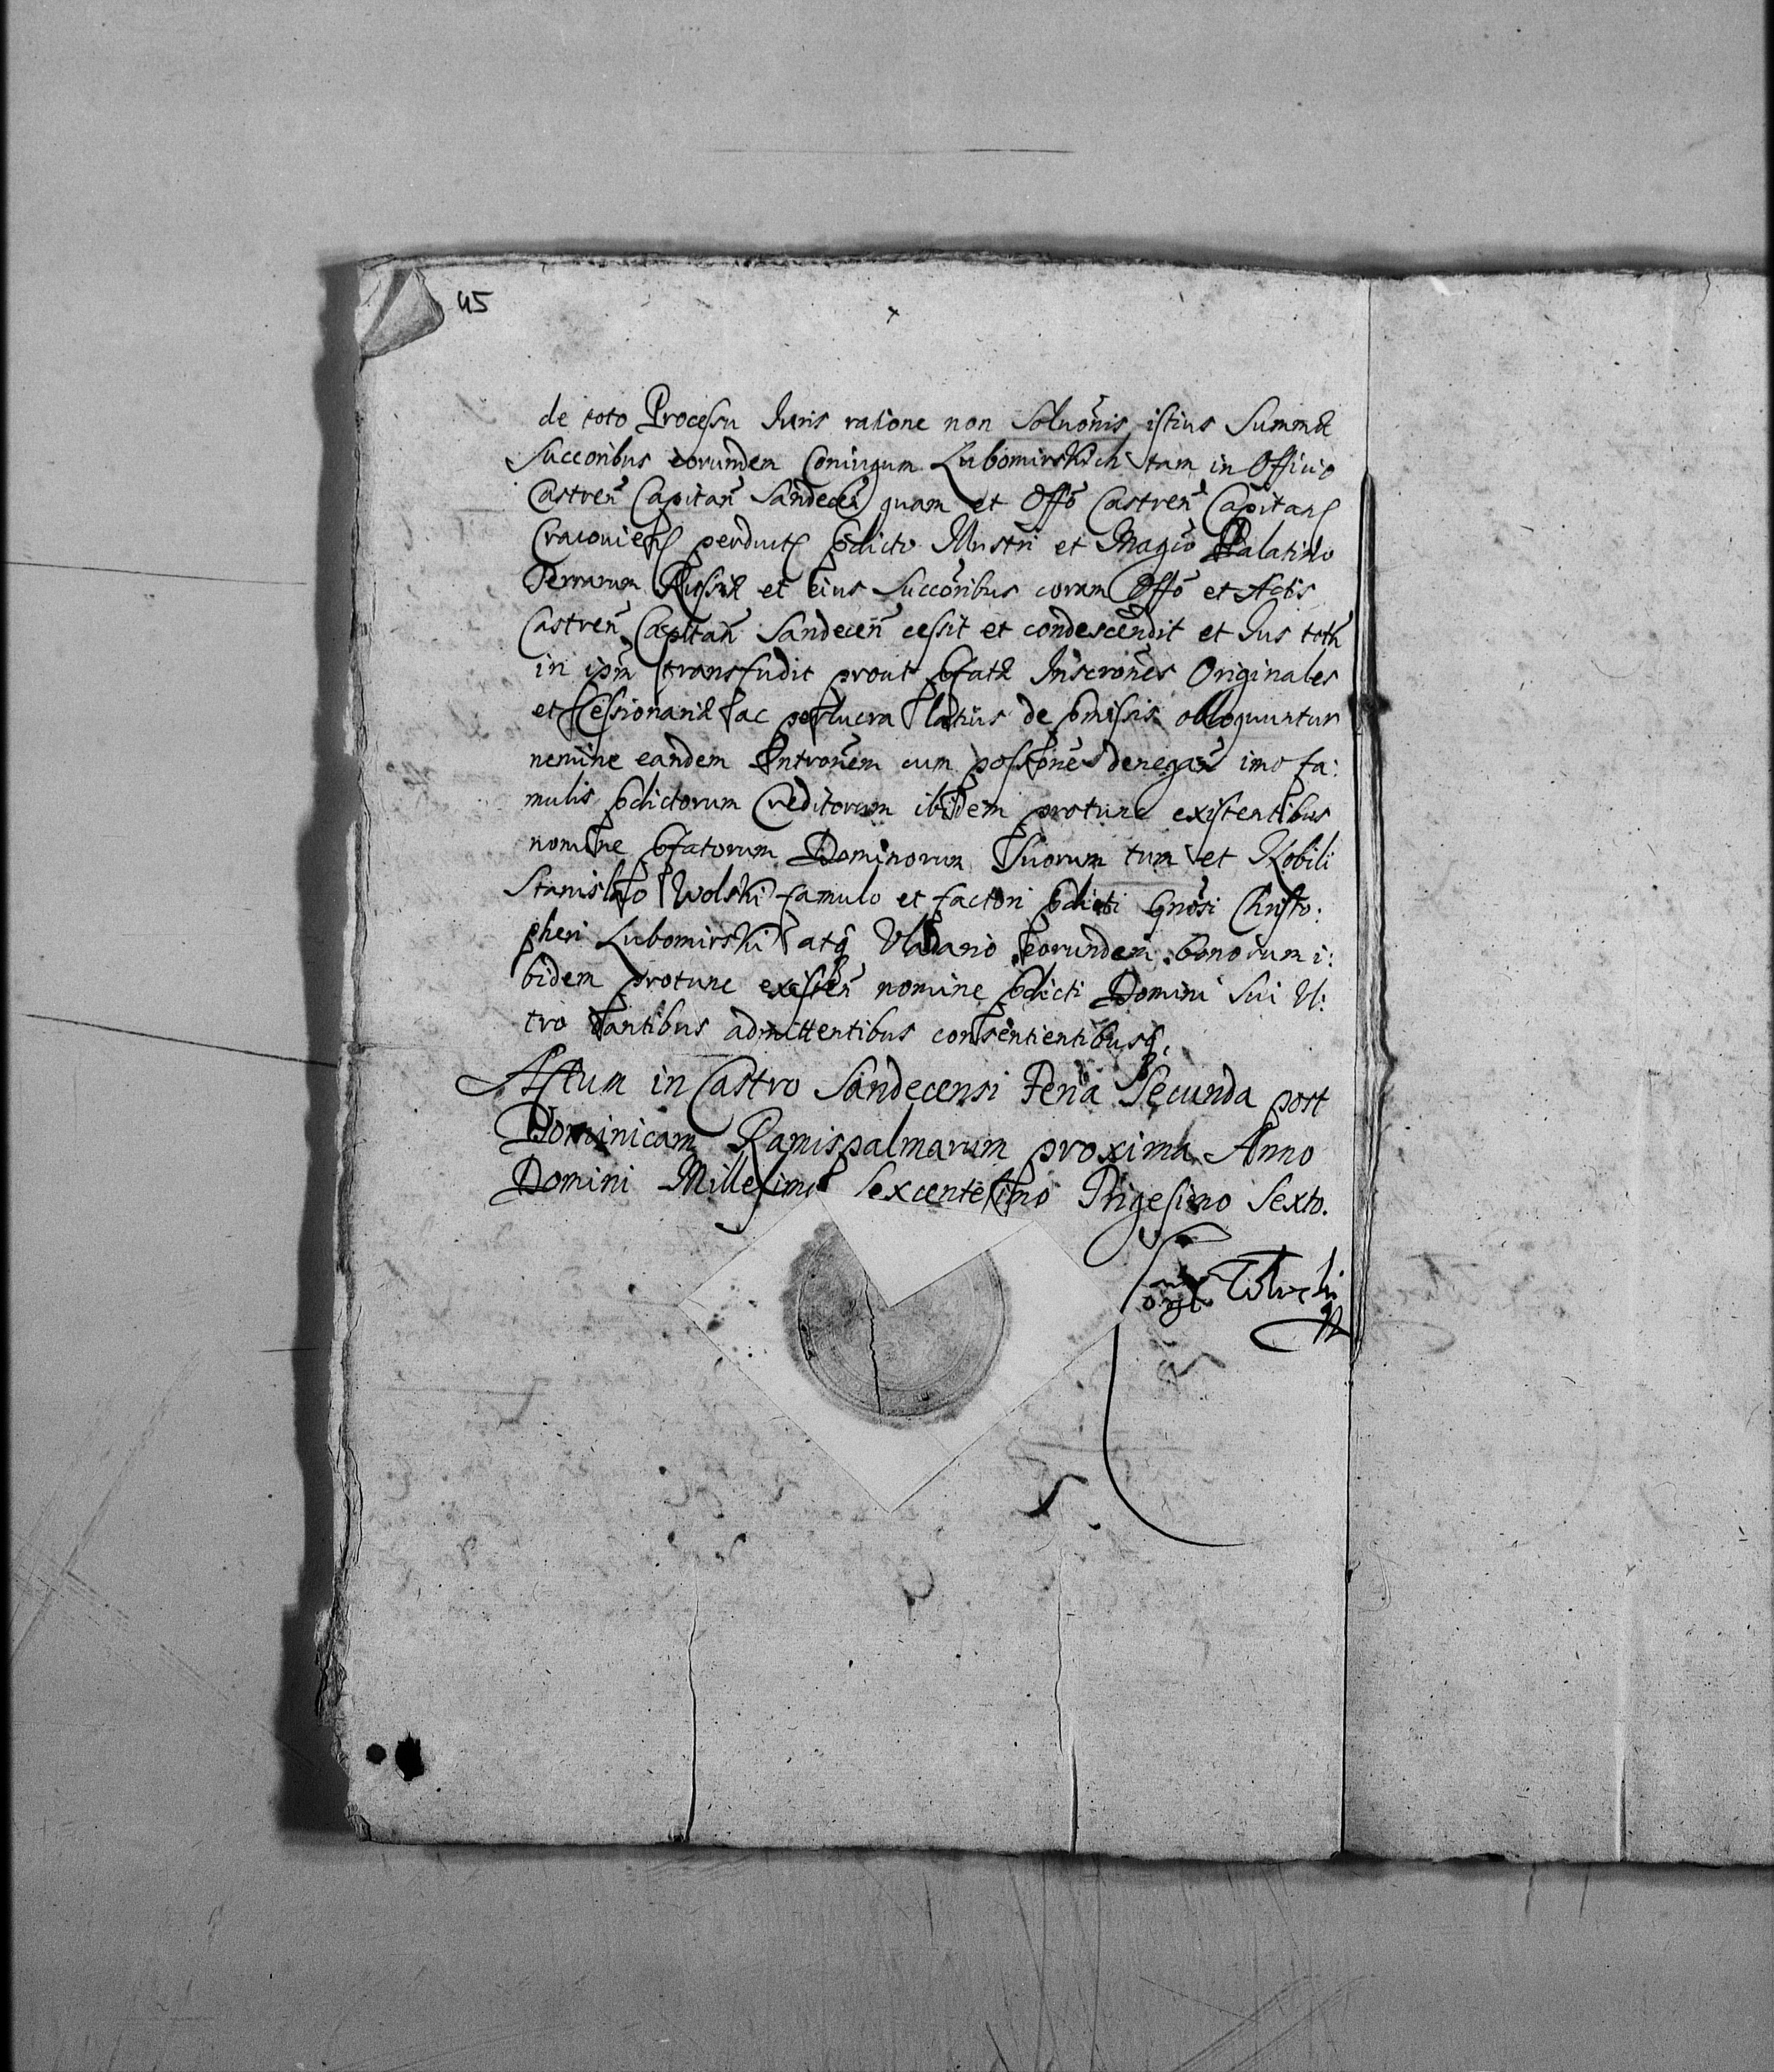 45
de toto Processu Iuris ratione non Soluõnis istius Summæ
Succoribus eorundem Coniugum Lubomirskich tam in Officio
Castreñ Capitañ Sandeceñ quam et Offõ Castreñ Capitan
Cracouien perduct pdicto Illustri et Magco Palatino
Terrarum Russiæ et eius Succõribus coram Offõ et Actis
Castreñ Capitañ Sandeceñ cessit et condescendit et Ius totũ
in ipm transfudit prout pfatæ Inscriones Originales
et Cessionariæ ac lucra latius de pmissis obloquuntur
nemine eandem Intronem cum possione denegañ imo fa:
mulis pdictorum Creditorum ibidem protunc existentibus
nomine pfatorum Dominorum Suorum tum et Nobili
Stanislao Wolski famulo et factori pdicti Gnosi Christo:
pheri Lubomirski atq Vladario eorundem bonorum i:
bidem protunc existeñ nomine pdicti Domini Sui Vl:
tro dantibus admittentibus consentientibusq.
Actum in Castro Sandecensi Feria Secunda post
Dominicam Ramispalmarum proxima Anno
Domini Millesimo Sexcentesimo Trigesimo Sexto.